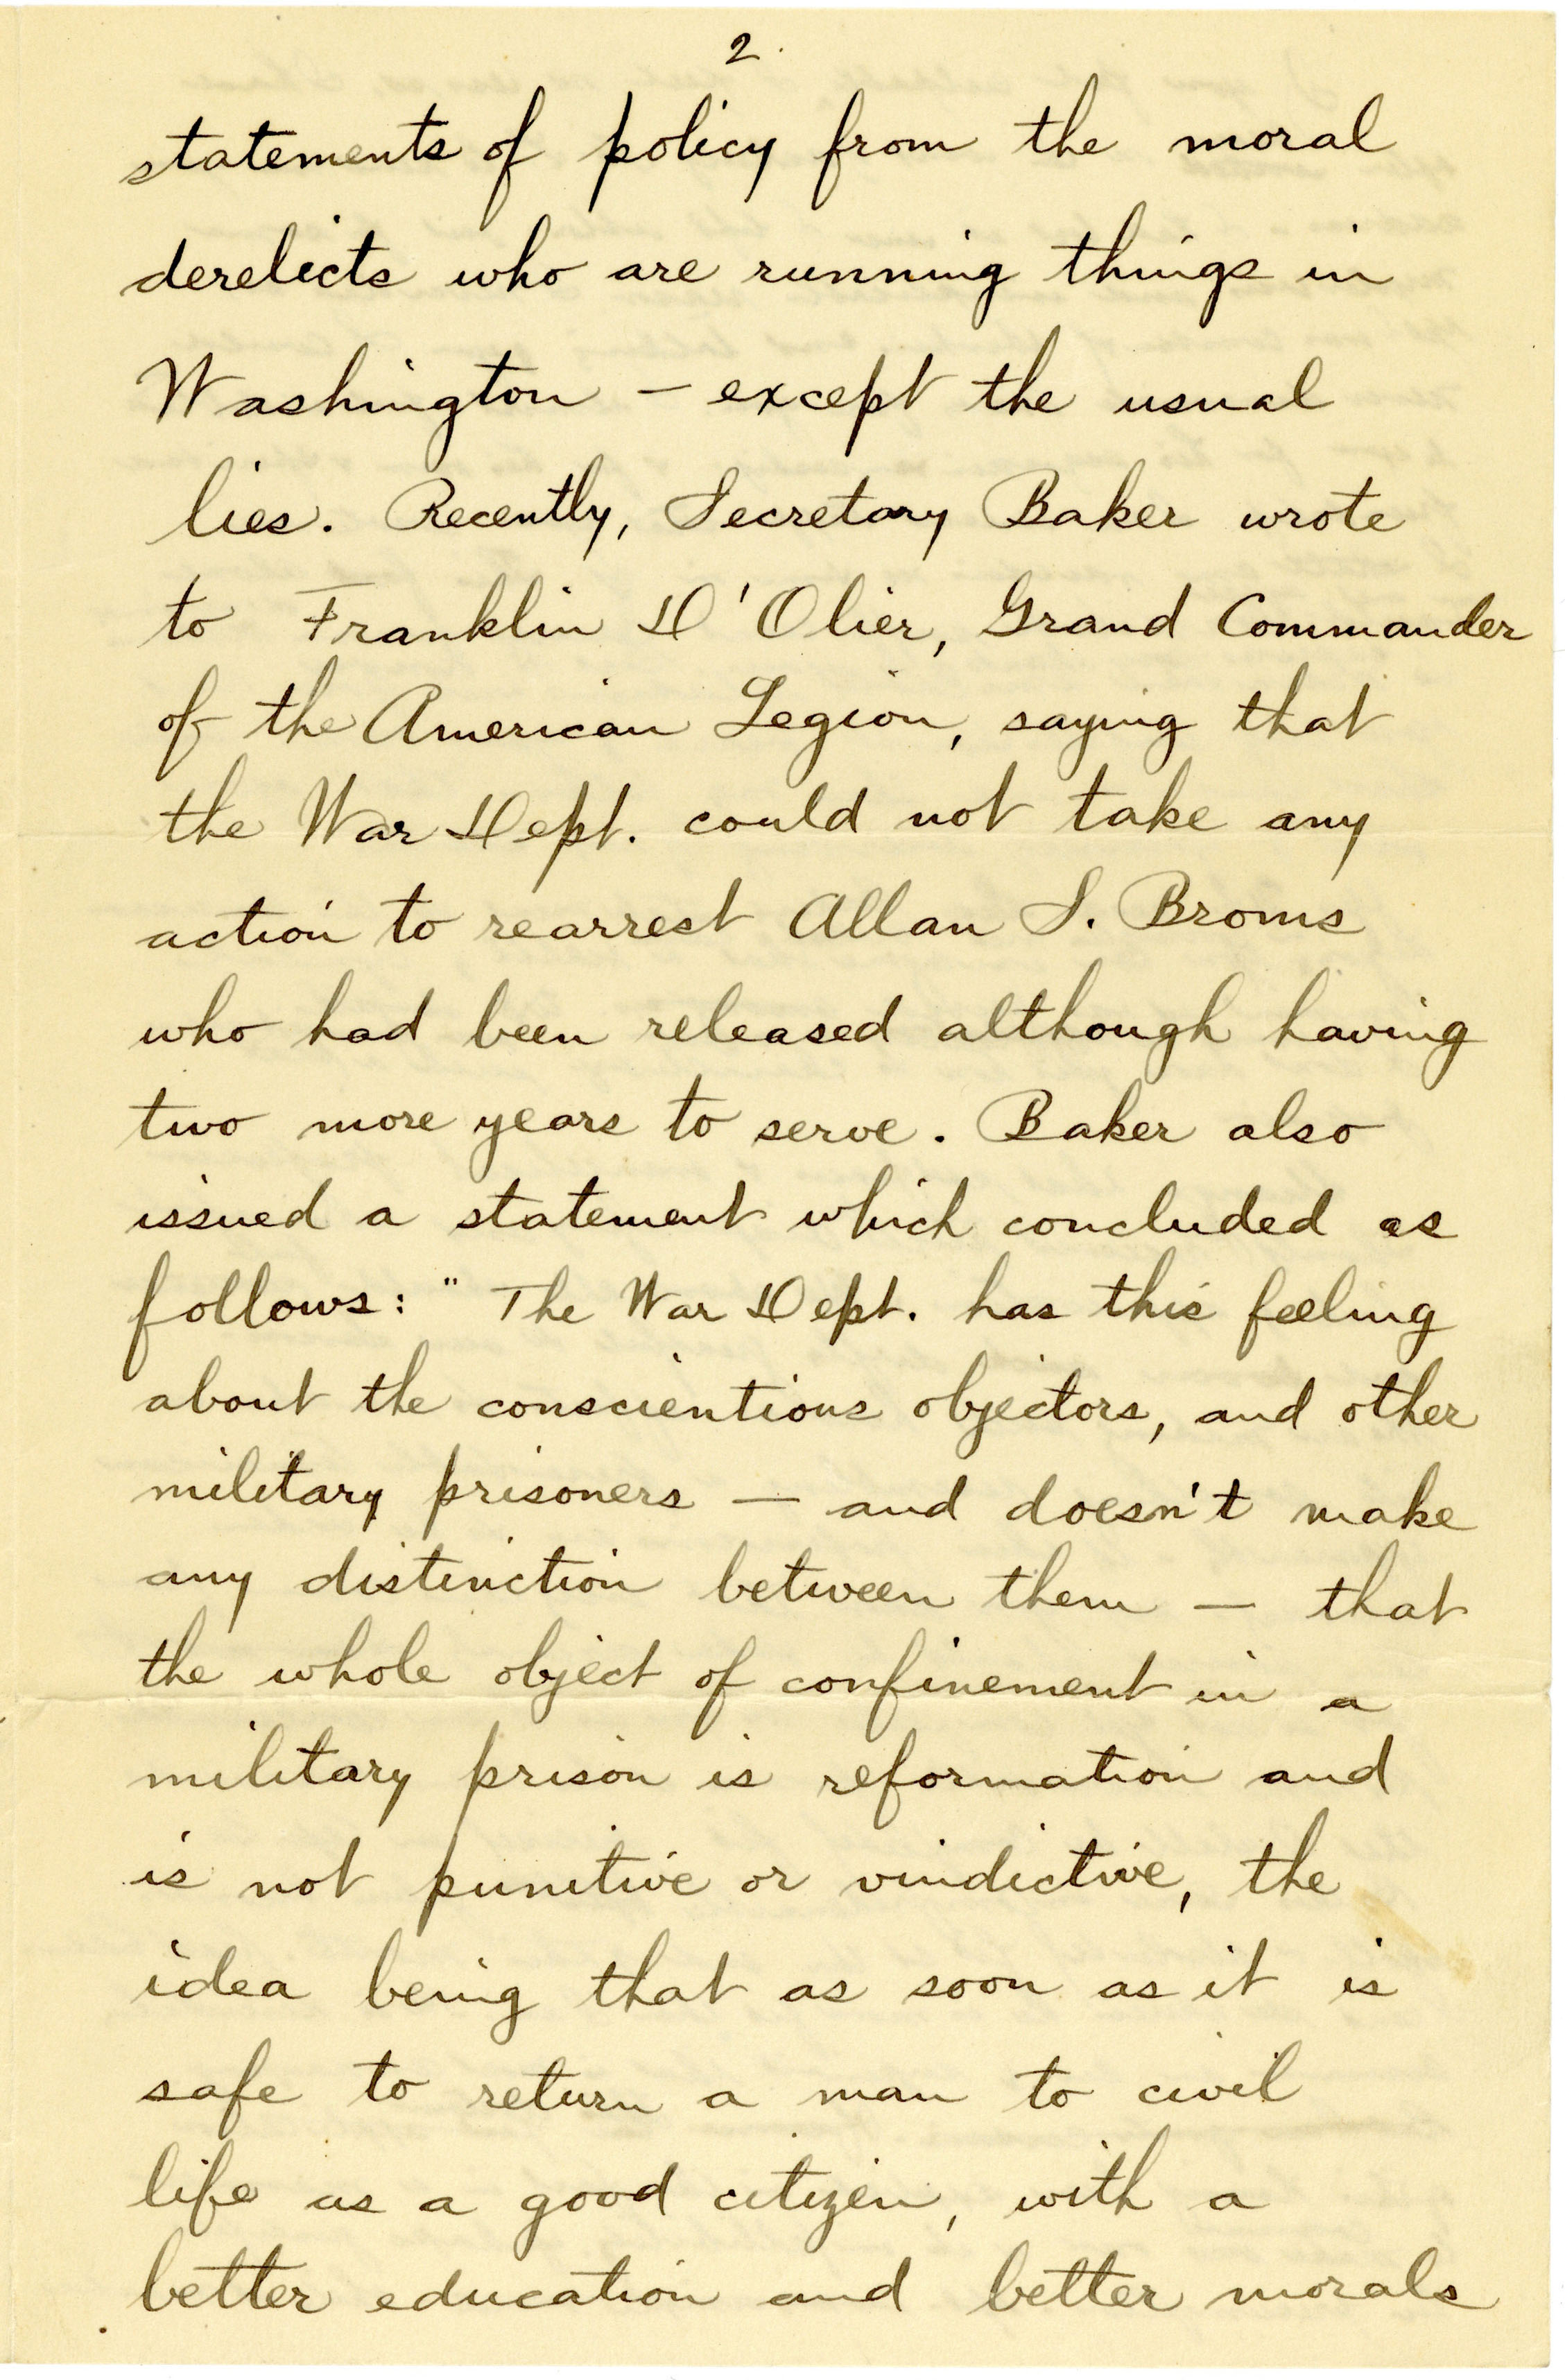 2.
statements of policy from the moral
derelicts who are running things in
Washington — except the usual
lies. Recently, Secretary Baker wrote
to Franklin D'Olier, Grand Commander
of the American Legion, saying that
the War Dept. could not take any
action to rearrest Allan S. Broms
who had been released although having
two more years to serve. Baker also
issued a statement which concluded as
follows: "The War Dept. has this feeling
about the conscientious objectors, and other
military prisoners — and doesn't make
any distinction between them — that
the whole object of confinement in a
military prison is reformation and
is not punitive or vindictive, the
idea being that as soon as it is
safe to return a man to civil
life as a good citizen, with a
better education and better morals